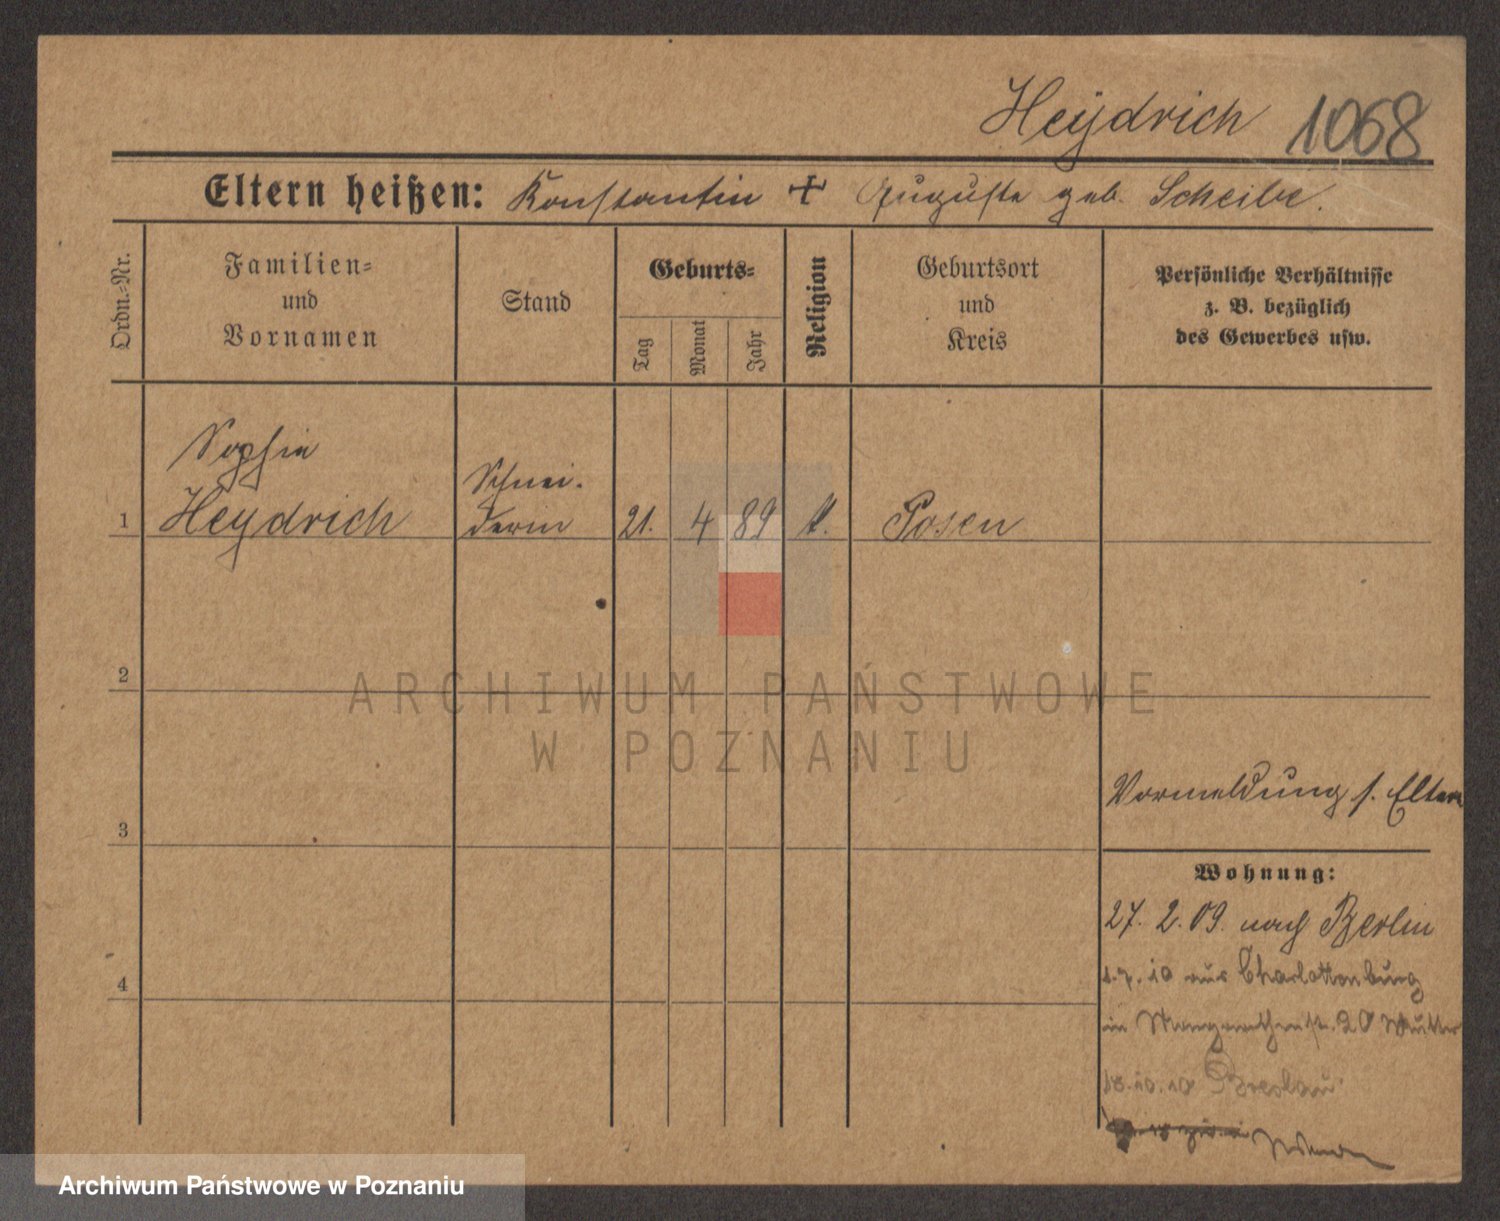 Heydrich 1068
Eltern heißen: Konstantin + Auguste geb. Scheibe.
Ordn.-Nr.
Familien-
und
Vornamen
Stand
Geburts-
Tag
Monat
Jahr
Religion
Geburtsort
und
Kreis
Persönliche Verhältnisse
z. B. bezüglich
des Gewerbes usw.
Sophie
Heydrich
Schnei-
derin
21. 4 89 k. Posen
1
2
3
4
Vormeldung s. Eltern
Wohnung:
27. 2. 09. nach Berlin
1.7.10 aus Charlottenburg
in 20 Mutter
18.10.10 Breslau
ARCHIWUM PAŃSTWOWE
W POZNANIU
Archiwum Państwowe w Poznaniu